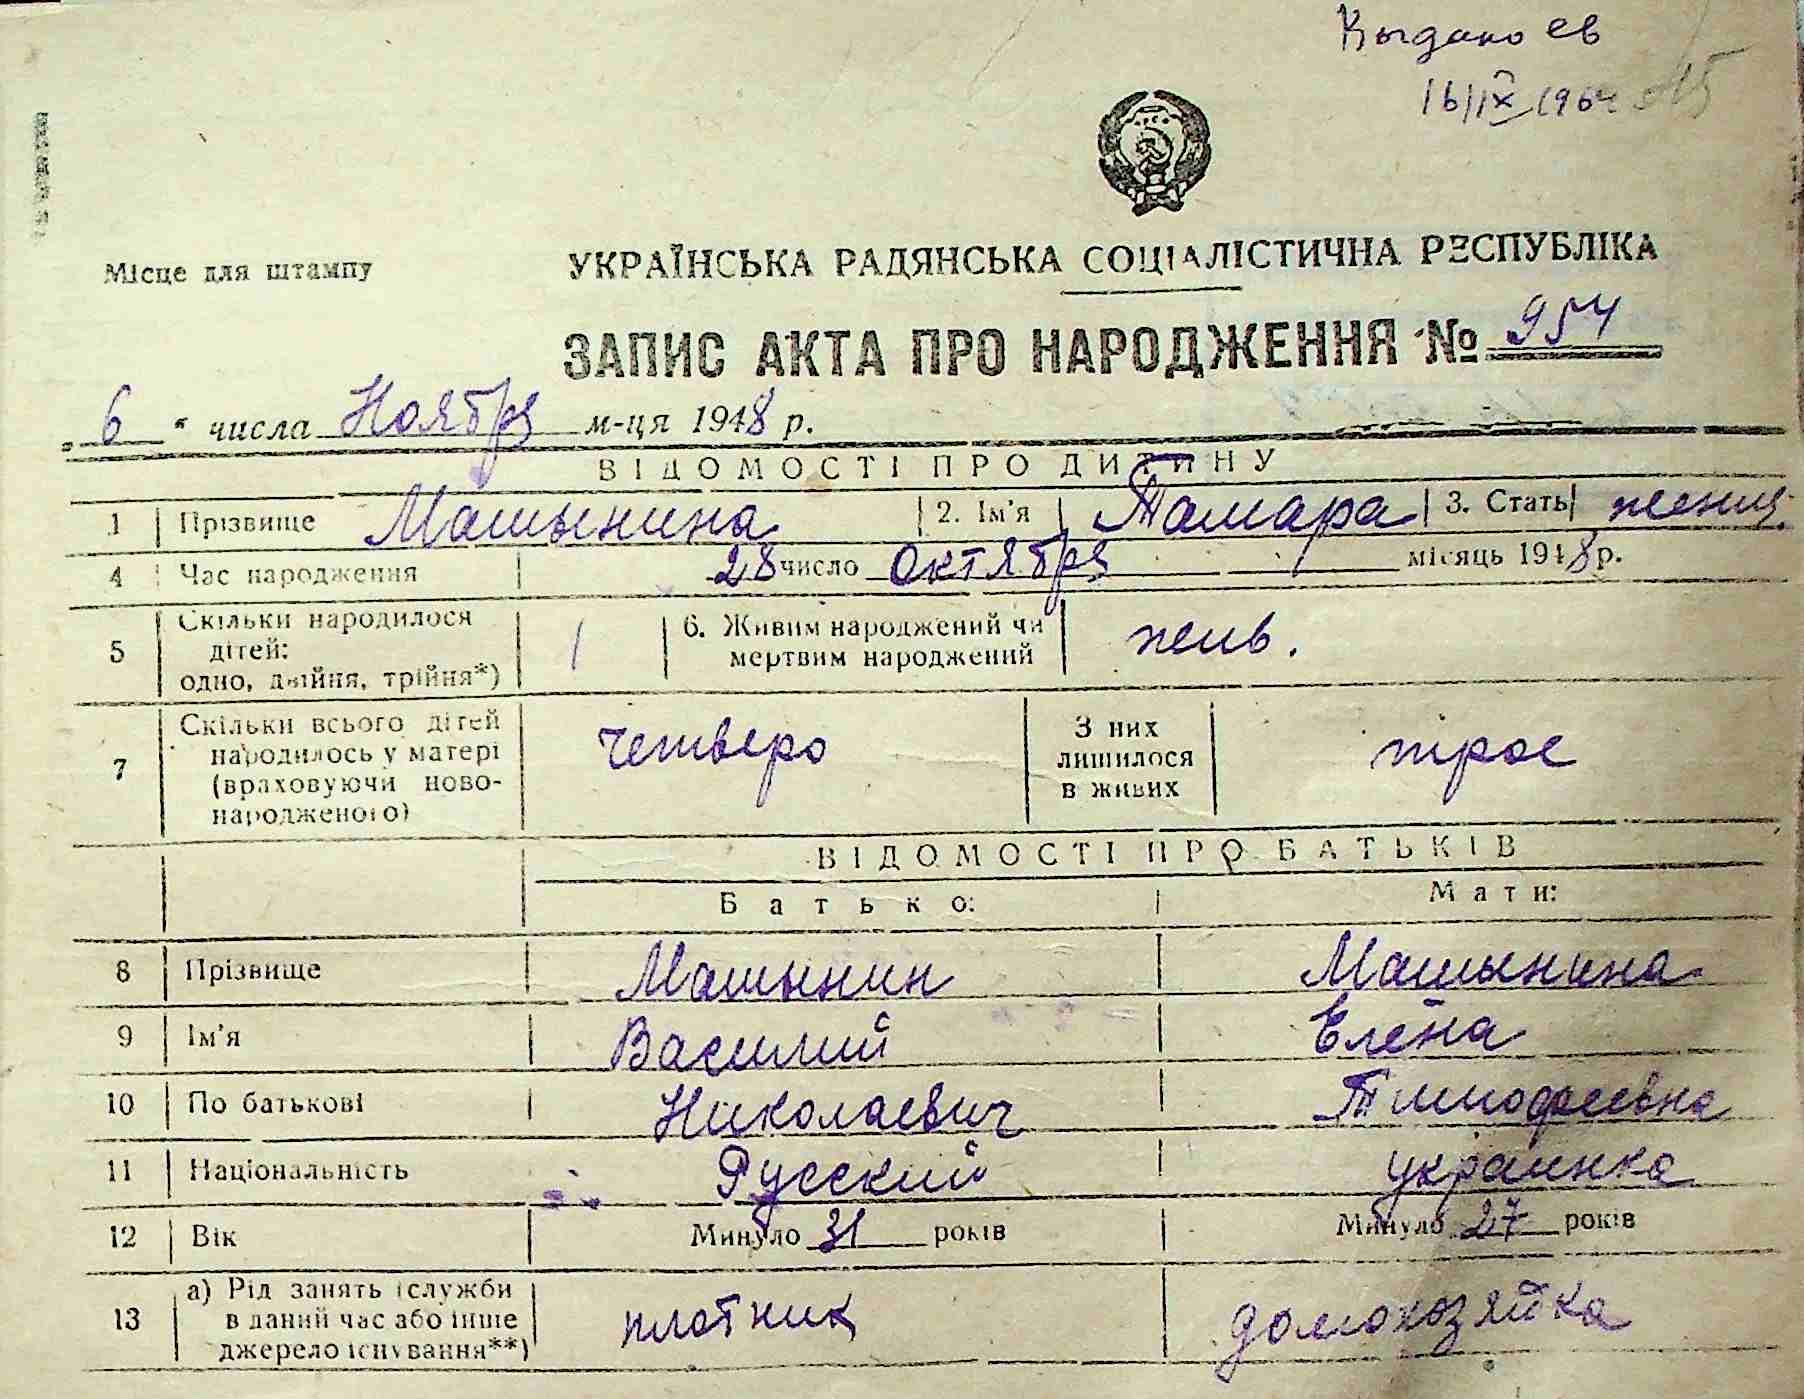 Выдано св
16/IX 1964
Місце для штампу
УКРАЇНСЬКА РАДЯНСЬКА СОЦІАЛІСТИЧНА РЕСПУБЛІКА
ЗАПИС АКТА ПРО НАРОДЖЕННЯ № 954
„6“ числа Ноября м-ця 1948 р.
ВІДОМОСТІ ПРО ДИТИНУ
1 Прізвище Машынина 2. Ім'я Тамара 3. Стать женщ.
4 Час народження 28 число октября місяць 1948 р.
5 Скільки народилося дітей: одно, двійня, трійня*) 1 6. Живим народжений чи мертвим народжений жив.
7 Скільки всього дітей народилось у матері (враховуючи новонародженого) четверо З них лишилося в живих трое
ВІДОМОСТІ ПРО БАТЬКІВ
Батько: Мати:
8 Прізвище Машынин Машынина
9 Ім'я Василий Елена
10 По батькові Николаевич Тимофеевна
11 Національність Русский украинка
12 Вік Минуло 31 років Минуло 27 років
13 а) Рід занять (служби в даний час або інше джерело існування**) плотник домохозяйка